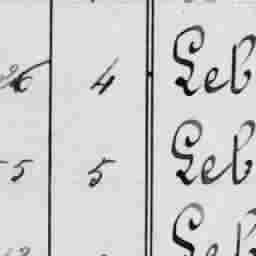 26 4 Leb
5 5 Leb
Leb